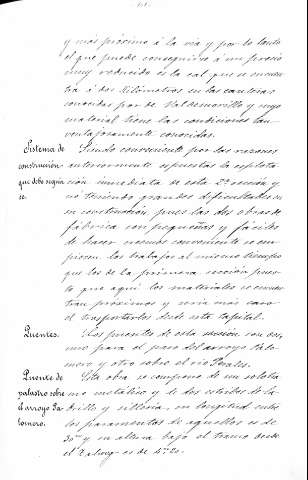 y mas próximo á la via y por lo tanto
el que puede conseguirse á un precio
muy reducido es la cal que se encuen
tra á dos Kilómetros en las canteras
conocidas por de Valdemorillo y cuyo
material tiene las condiciones tan
ventajosamente conocidas.
Sistema de
construcción
que debe seguir
se.
Siendo conveniente por las razones
anteriormente espuestas la esplota
ción inmediata de esta 2ª sección y
no teniendo grandes dificultades en
su construcción pues las dos obras de
fábrica son pequeñas y fáciles
de hacer creemos conveniente se em
piecen los trabajos al mismo tiempo
que los de la primera sección pues
to que aquí los materiales se encuen
tran próximos y seria más caro
el trasportarlos desde esta capital.
Puentes.
Los puentes de esta sección son dos,
uno para el paso del arroyo Palo
mero y otro sobre el rio Perales.
Puente de
palastro sobre
el arroyo Pa
lomero.
Esta obra se compone de un solo tra
mo metálico y de dos estribos de la
drillo y silleria, su longitud entre
los paramentos de aquellos es de
30m y su altura bajo el tramo desde
el es de 4m20.